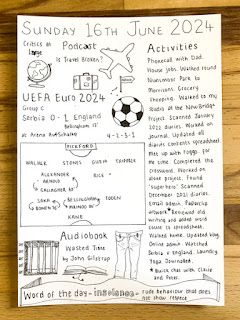 SUNDAY 16TH JUNE 2024
Critics at Large
Podcast
Is Travel Broken?
UEFA Euro 2024
Group C
Serbia 0-1 England
Bellingham 13'
at Arena AufSchalke
4-2-3-1
PICKFORD
WALKER STONES GUEHI TRIPPIER
ALEXANDER ARNOLD RICE
GALLAGHER
SAKA BELLINGHAM FODEN
BOWEN MAINOO
KANE
Audiobook
Wasted Time
by John Gilstrap
Activities
Phonecall with Dad.
House jobs. Walked round
Nunsmoor Park to
Morrisons. Grocery
shopping. Walked to my
studio at the NewBridge
Project. Scanned January
2022 diaries. Worked on
journal. Updated all
diaries contents spreadsheet.
Met up with
me time. Completed the
crossword. Worked on
project. Found
'superhero'. Scanned
December 2021 diaries.
Email admin.
artwork. Renewed old
writing and added word
count to spreadsheet.
Walked home. Updated blog.
Online admin. Watched
Serbia v England. Laundry.
Yoga. Downdog.
Quick chat with Claire
and Peter.
Word of the day - insolence - rude behaviour that does
not show respect